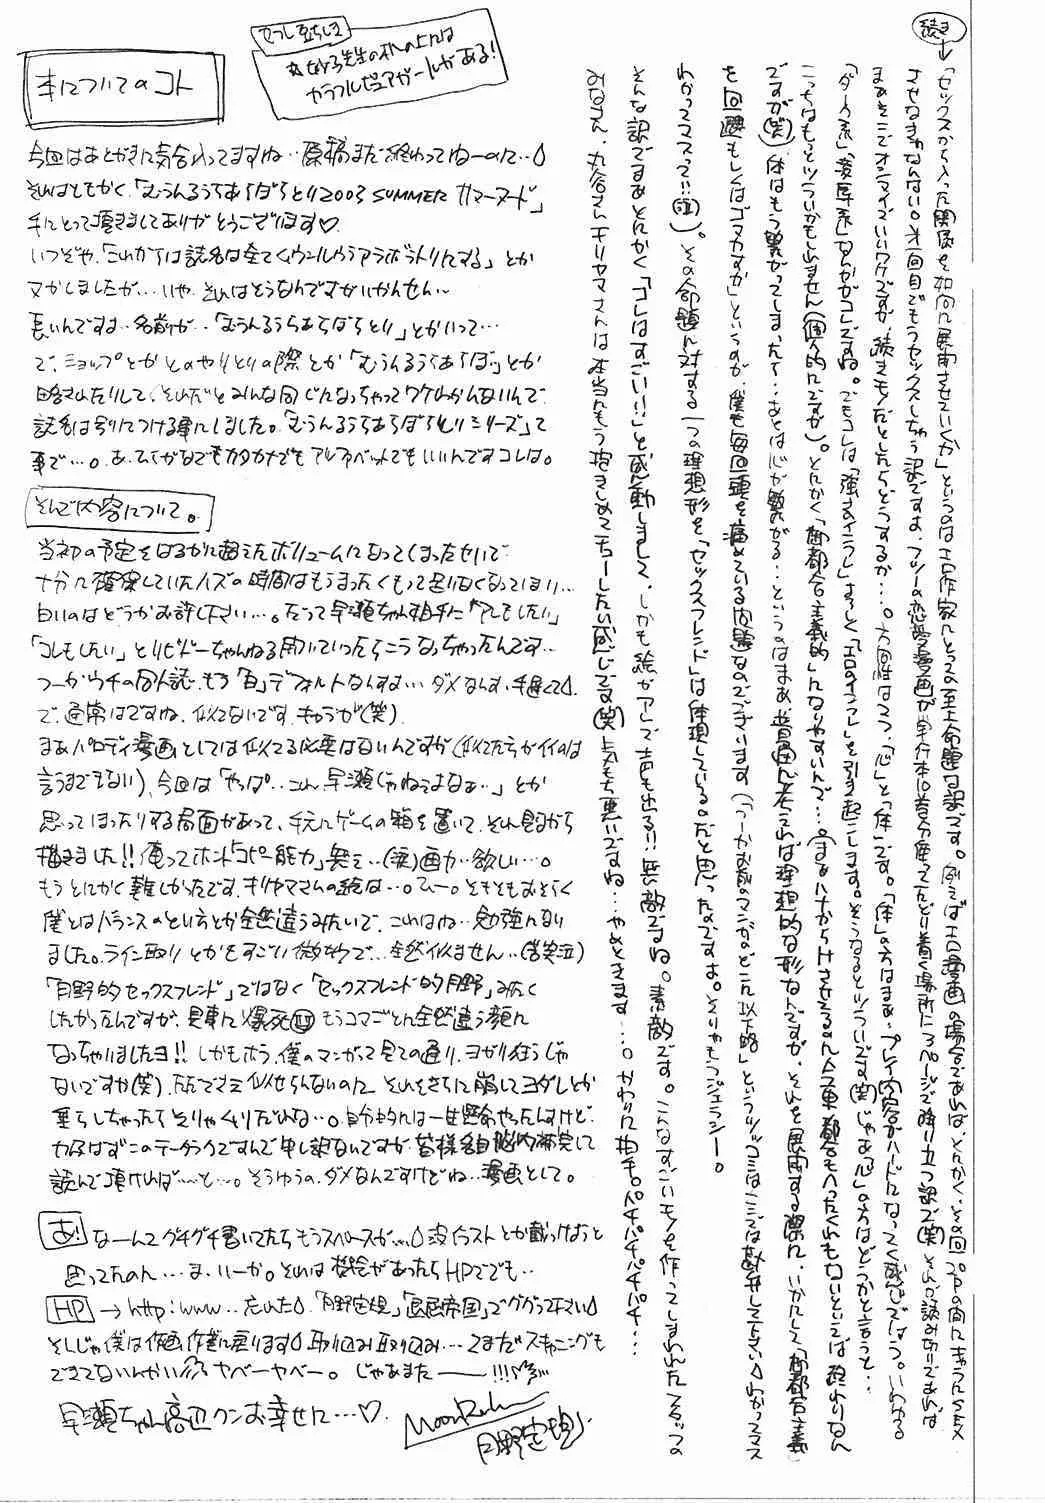 続き→「セックスから入った関係を如何に展開させていくか」というのはエロ作家にとって至上命題な訳です。例えばエロ漫画の場合であれば、とにかく、その回
させなきゃなんない。オ一回目でもうセックスしちゃう訳ですよ、フツーの恋愛漫画が単行本10冊分使ってたどり着く場所に
まあそこでオシマイでいいワケですが、続きモノだとしたらどうするか…。方向性は2つ、「心」と「体」です。「体」の方はまあ、プレイ内容がハードになってく感じでしょう。いわゆる
でもコレは「強さのインフレ」よろしく「エロのインフレ」を引き起こします。そうなるとツライです(笑)じゃあ「心」の方はどうかと言うと…
こっちはもっとツライかもしれません(個人的にですが)。とにかく「御都合主義的」になりやすいんで…。
ですが(笑)体はもう繋がってしまった…あとは心が繋がる…というのはまあ普通に考えれば理想的な形なんですが、それを展開する際に、いかにして「御都合主義」
を回避もしくはゴマカすか」というのが、僕も毎回頭を痛めている問題なのでございます(「つーかお前のマンガのどこに以下略」というツッコミはここでは勘弁して下さい わかってマス
わかってマスって!!(泣))。その命題に対する一つの理想形を「セックスフレンド」は体現している。だと思ったのですよ。そりゃもうジェラシー。
そんな訳でまあとにかく「コレはすごい!!」と感動しまして、しかも絵がアレで声も出る!!無敵ですね。素敵です。こんなすごいモノを作ってしまわれたスタッフの
みなさん、丸谷さんキリヤマさんは本当にもう抱きしめてチューしたい感じです(笑)気持ち悪いですね…やめときます…。かわりに拍手。パチパチパチパチ…
本についてのコト
今回はあとがきに気合入ってますね‥原稿まだ終わってねーのに…
それはともかく、「むうんるうらあらぼらとり2003 SUMMER サマーヌード」
手にとって頂きましてありがとうございます♡
いつぞや、「これからは誌名は全てムウンルウラアラボラトリにする」とか
ヌかしましたが…いや、それはそうなんですがいかんせん〜
長いんですよ‥名前が‥「むうんるうらあらぼらとり」とかいって…
で、ショップとかとのやりとりの際とか「むうんるうらあらぼ」とか
略されたりして、それだとみんな同じになっちゃってワケわかんないんで、
誌名は別につける事にしました。「むうんるうらあらぼらとりシリーズ」って
事で…。あ、ひらがなでもカタカナでもアルファベットでもいいんですコレは。
そんで内容について。
当初の予定をはるかに超えたボリュームになってしまったせいで
十分に確保していたハズの時間はもうまったくもって足りなくなってしまい…
白いのはどうかお許し下さい…。だって早瀬ちゃん相手に「アレもしたい」
「コレもしたい」とリビドーちゃんねる開いていったらこうなっちゃったんです…
つーかウチの同人誌、もう「白」デフォルトなんすよ…ダメなんす、手遅くて
で、通常はですね、似てないです、キャラが(笑)
まあパロディ漫画としては似てる必要はないんですが(似てた方がイイのは
言うまでもない)、今回は「やっぱ‥これ早瀬じゃねえよなあ‥」とか
思ってしまったりする局面があって、手元にゲームの箱を置いて、それ見ながら
描きました!!俺ってホント「コピー能力」無え‥(涙)画力欲しい…。
もうとにかく難しかったです、キリヤマさんの絵は…。ひー。そもそもおそらく
僕とはバランスのとり方とか全然違うみたいで、これはね‥勉強になり
ました。ライン取りとかもすごい微妙で…全然似ません‥(苦笑泣)
「月野的セックスフレンド」ではなく「セックスフレンド的月野」みたく
したかったんですが、見事に爆死 もうコマごとに全然違う顔に
なっちゃいましたヨ!!しかもホラ、僕のマンガって見ての通り、ヨガり狂うじゃ
ないですか(笑)、ただでさえ似せらんないのに、それをさらに崩してヨダレとか
垂らしちゃったらそりゃムリだわな‥。自分的には一生懸命やったんすけど、
力及ばずこのテータラクですんで申し訳ないですが、皆様各自脳内補完して
読んで頂ければ〜と…。そうゆうの、ダメなんですけどね…漫画として。
あ! なーんてグチグチ書いてたらもうスペースが… 没イラストとか載っけようと
思ってたのに…ま、いーか。それは機会があったらHPででも‥
HP→http:www‥忘れた 「月野定規」「良居帝国」でググって下さい
そんじゃ僕は作画作業に戻ります 取り込み取り込み…てまだスキャニングも
できてないんかい ヤベーヤベー。じゃあまた――!!!
早瀬ちゃん高辺クンお幸せに…♡
MoonRuler
月野定規